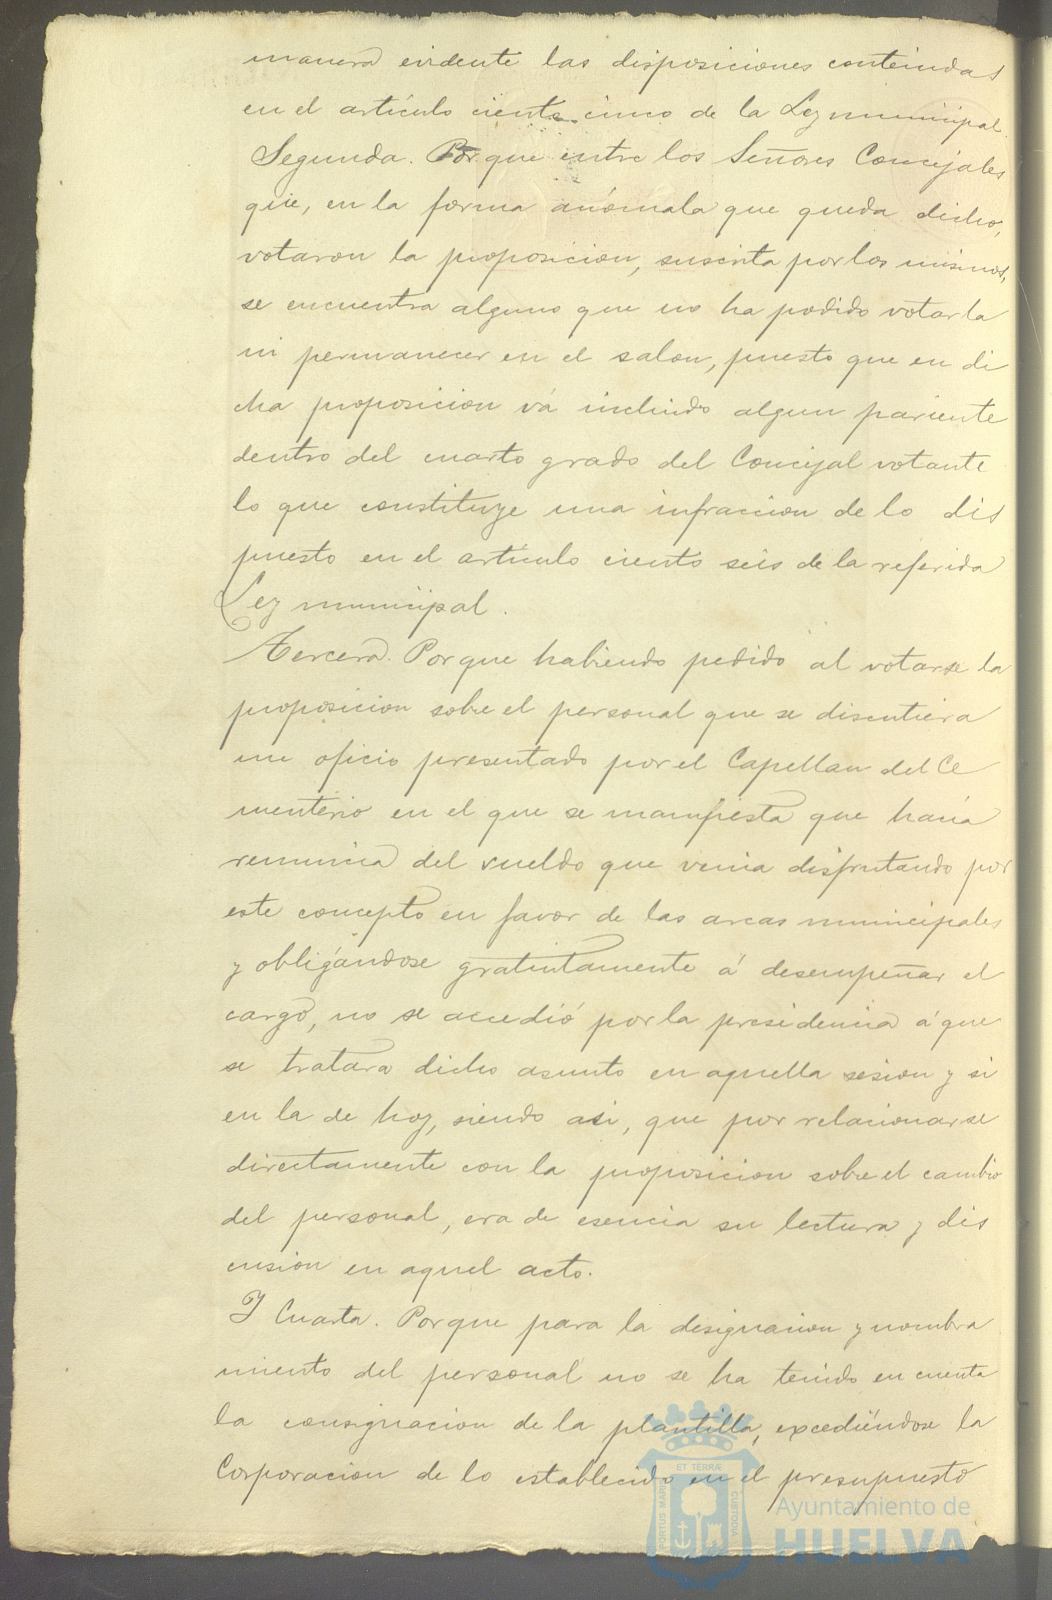 manera evidente las disposiciones conteindas
en el artículo ciento cinco de la Ley municipal.
Segunda. Por que entre los Señores Concejales
que, en la forma anómala que queda dicho,
votaron la proposicion, suscrita por los mismos,
se encuentra alguno que no ha podido votarla
ni permanecer en el salon, puesto que en di
cha proposicion vá incluido algun pariente
dentro del cuarto grado del Concejal votante
lo que constituye una infraccion de lo dis
puesto en el artículo ciento seis de la referida
Ley municipal.
Tercera. Por que habiendo pedido al votarse la
proposicion sobre el personal que se discutiera
un oficio presentado por el Capellan del Ce
menterio en el que se manifiesta que hacia
renuncia del sueldo que venia disfrutando por
este concepto en favor de las arcas municipales
y obligándose gratuitamente á desempeñar el
cargo, no se accedió por la presidencia á que
se tratara dicho asunto en aquella sesion y si
en la de hoy, siendo asi, que por relacionarse
directamente con la proposicion sobre el cambio
del personal, era de esencia su lectura y dis
cusion en aquel acto.
Y Cuarta. Por que para la designacion y nombra
miento del personal no se ha tenido en cuenta
la consignacion de la plantilla, excediéndose la
Corporacion de lo establecido en el presupuesto
ET TERRÆ
PORTUS MARIS
CUSTODIA
Ayuntamiento de
HUELVA